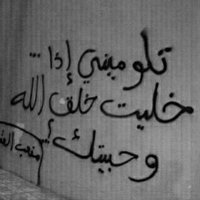 تلوميني إذا ...
خليت خلق الله
وحبيتك !